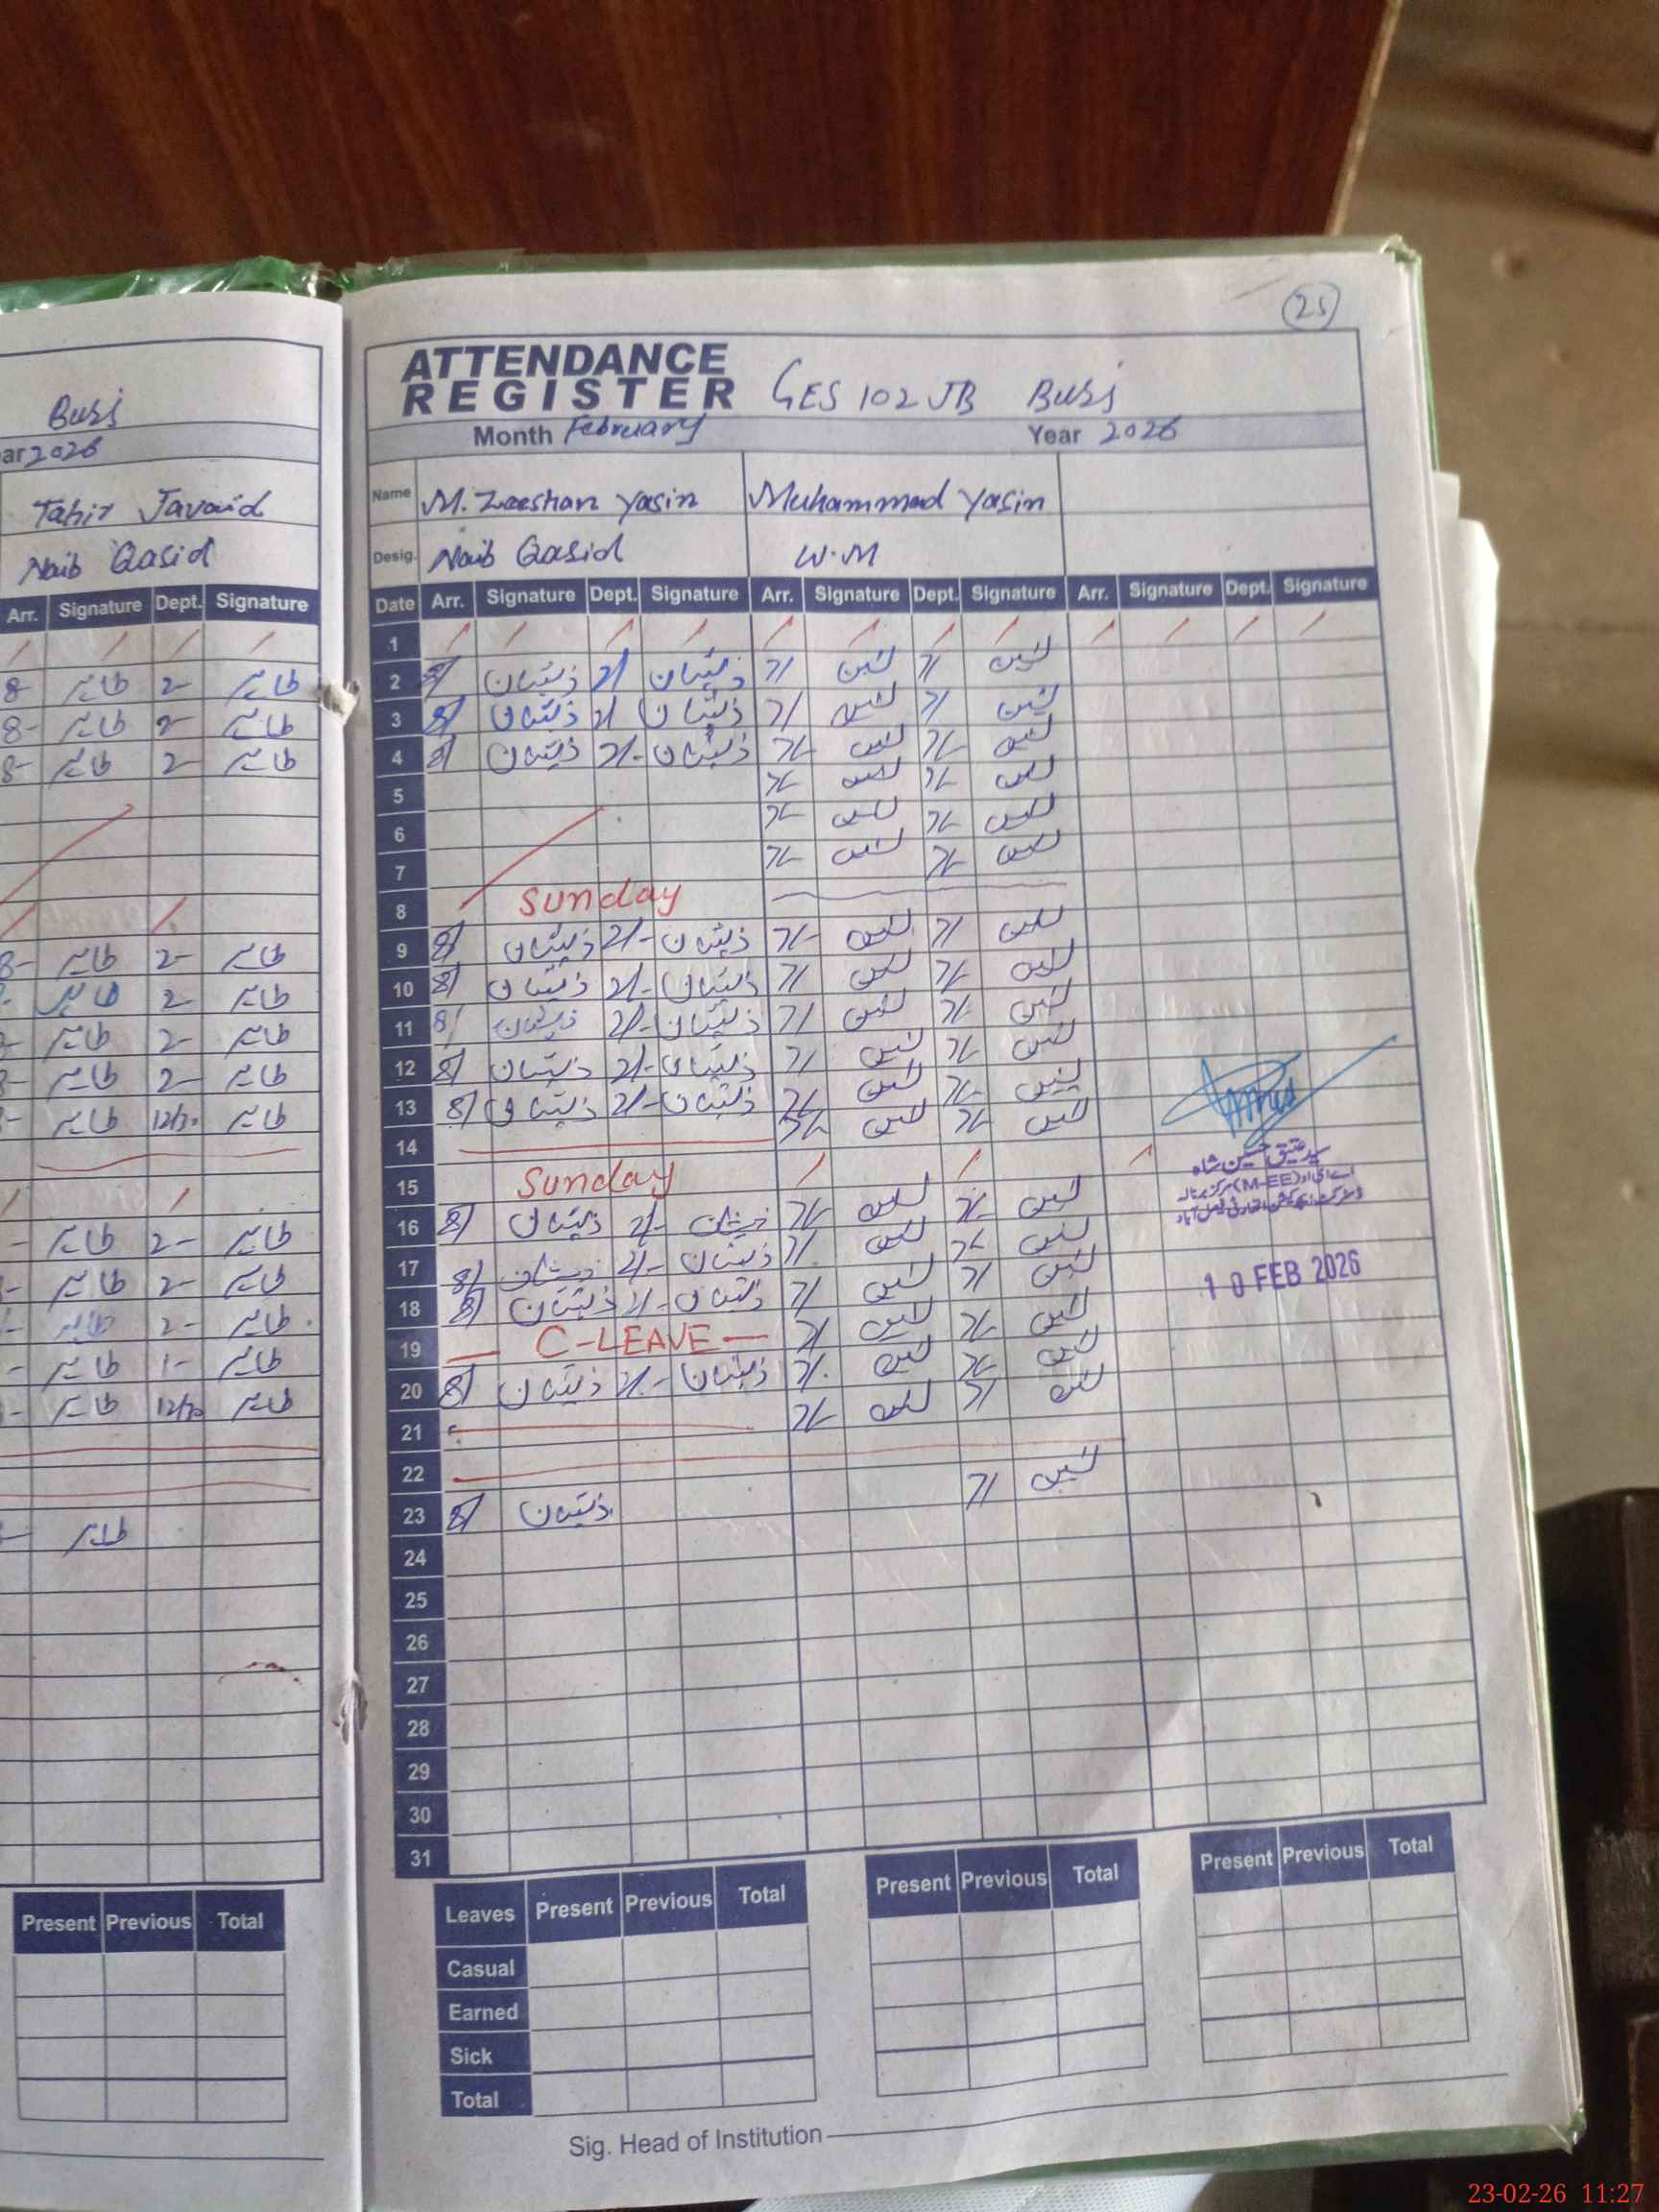 25
ATTENDANCE
REGISTER GES 102 JB Burj
Month February Year 2026
Name M. Zeeshan Yasin Muhammad Yasin
Desig. Naib Qasid W.M
Date Arr. Signature Dept. Signature Arr. Signature Dept. Signature Arr. Signature Dept. Signature
1
2 8/ ذیشان 2/ ذیشان 7/ یٰسین 7/ یٰسین
3 8/ ذیشان 2/ ذیشان 7/ یٰسین 7/ یٰسین
4 8/ ذیشان 2/- ذیشان 7/- یٰسین 7/- یٰسین
5 7/- یٰسین 7/- یٰسین
6 7/- یٰسین 7/- یٰسین
7 7/- یٰسین 7/- یٰسین
8 Sunday
9 8/ ذیشان 2/- ذیشان 7/- یٰسین 7/ یٰسین
10 8/ ذیشان 2/- ذیشان 7/ یٰسین 7/- یٰسین
11 8/ ذیشان 2/- ذیشان 7/ یٰسین 7/ یٰسین
12 8/ ذیشان 2/- ذیشان 7/ یٰسین 7/- یٰسین
13 8/ ذیشان 2/- ذیشان 7/- یٰسین 7/- یٰسین
14 7/- یٰسین 7/- یٰسین
15 Sunday
16 8/ ذیشان 2/- ذیشان 7/- یٰسین 7/- یٰسین
17 8/ ذیشان 2/- ذیشان 7/ یٰسین 7/- یٰسین
18 8/ ذیشان 2/- ذیشان 7/ یٰسین 7/ یٰسین
19 C-LEAVE 7/ یٰسین 7/- یٰسین
20 8/ ذیشان 2/- ذیشان 7/ یٰسین 7/- یٰسین
21 7/- یٰسین 7/ یٰسین
22
23 8/ ذیشان 7/ یٰسین
24
25
26
27
28
29
30
31
سید عتیق حسین شاہ
اے ای او (M-EE) مرکز
ڈسٹرکٹ ایجوکیشن اتھارٹی فیصل آباد
10 FEB 2026
Leaves Present Previous Total Present Previous Total Present Previous Total
Casual
Earned
Sick
Total
Sig. Head of Institution
Burj
ar 2026
Tahir Javaid
Naib Qasid
Arr. Signature Dept. Signature
8- طاہر 2- طاہر
8- طاہر 2- طاہر
8- طاہر 2- طاہر
8- طاہر 2- طاہر
- طاہر 2- طاہر
- طاہر 2- طاہر
- طاہر 2- طاہر
- طاہر 12/30 طاہر
- طاہر 2- طاہر
- طاہر 2- طاہر
- طاہر 2- طاہر
- طاہر 1- طاہر
- طاہر 12/30 طاہر
- طاہر
Present Previous Total
23-02-26 11:27